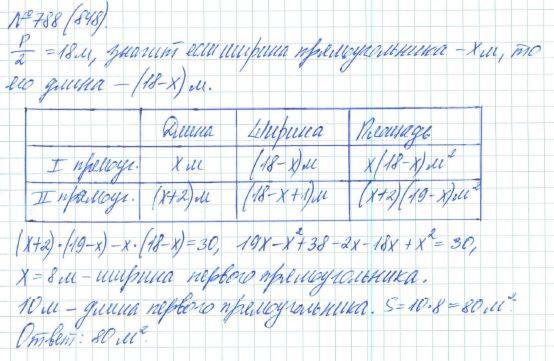 № 788 (848).
P/2 = 18 м, значит если ширина прямоугольника – x м, то
его длина – (18-x) м.
Длина Ширина Площадь
I прямоуг. x м (18-x) м x(18-x) м²
II прямоуг. (x+2) м (18-x+1) м (x+2)(19-x) м²
(x+2)·(19-x)-x·(18-x)=30, 19x-x²+38-2x-18x+x²=30,
x=8 м – ширина первого прямоугольника.
10 м – длина первого прямоугольника. S=10·8=80 м².
Ответ: 80 м².